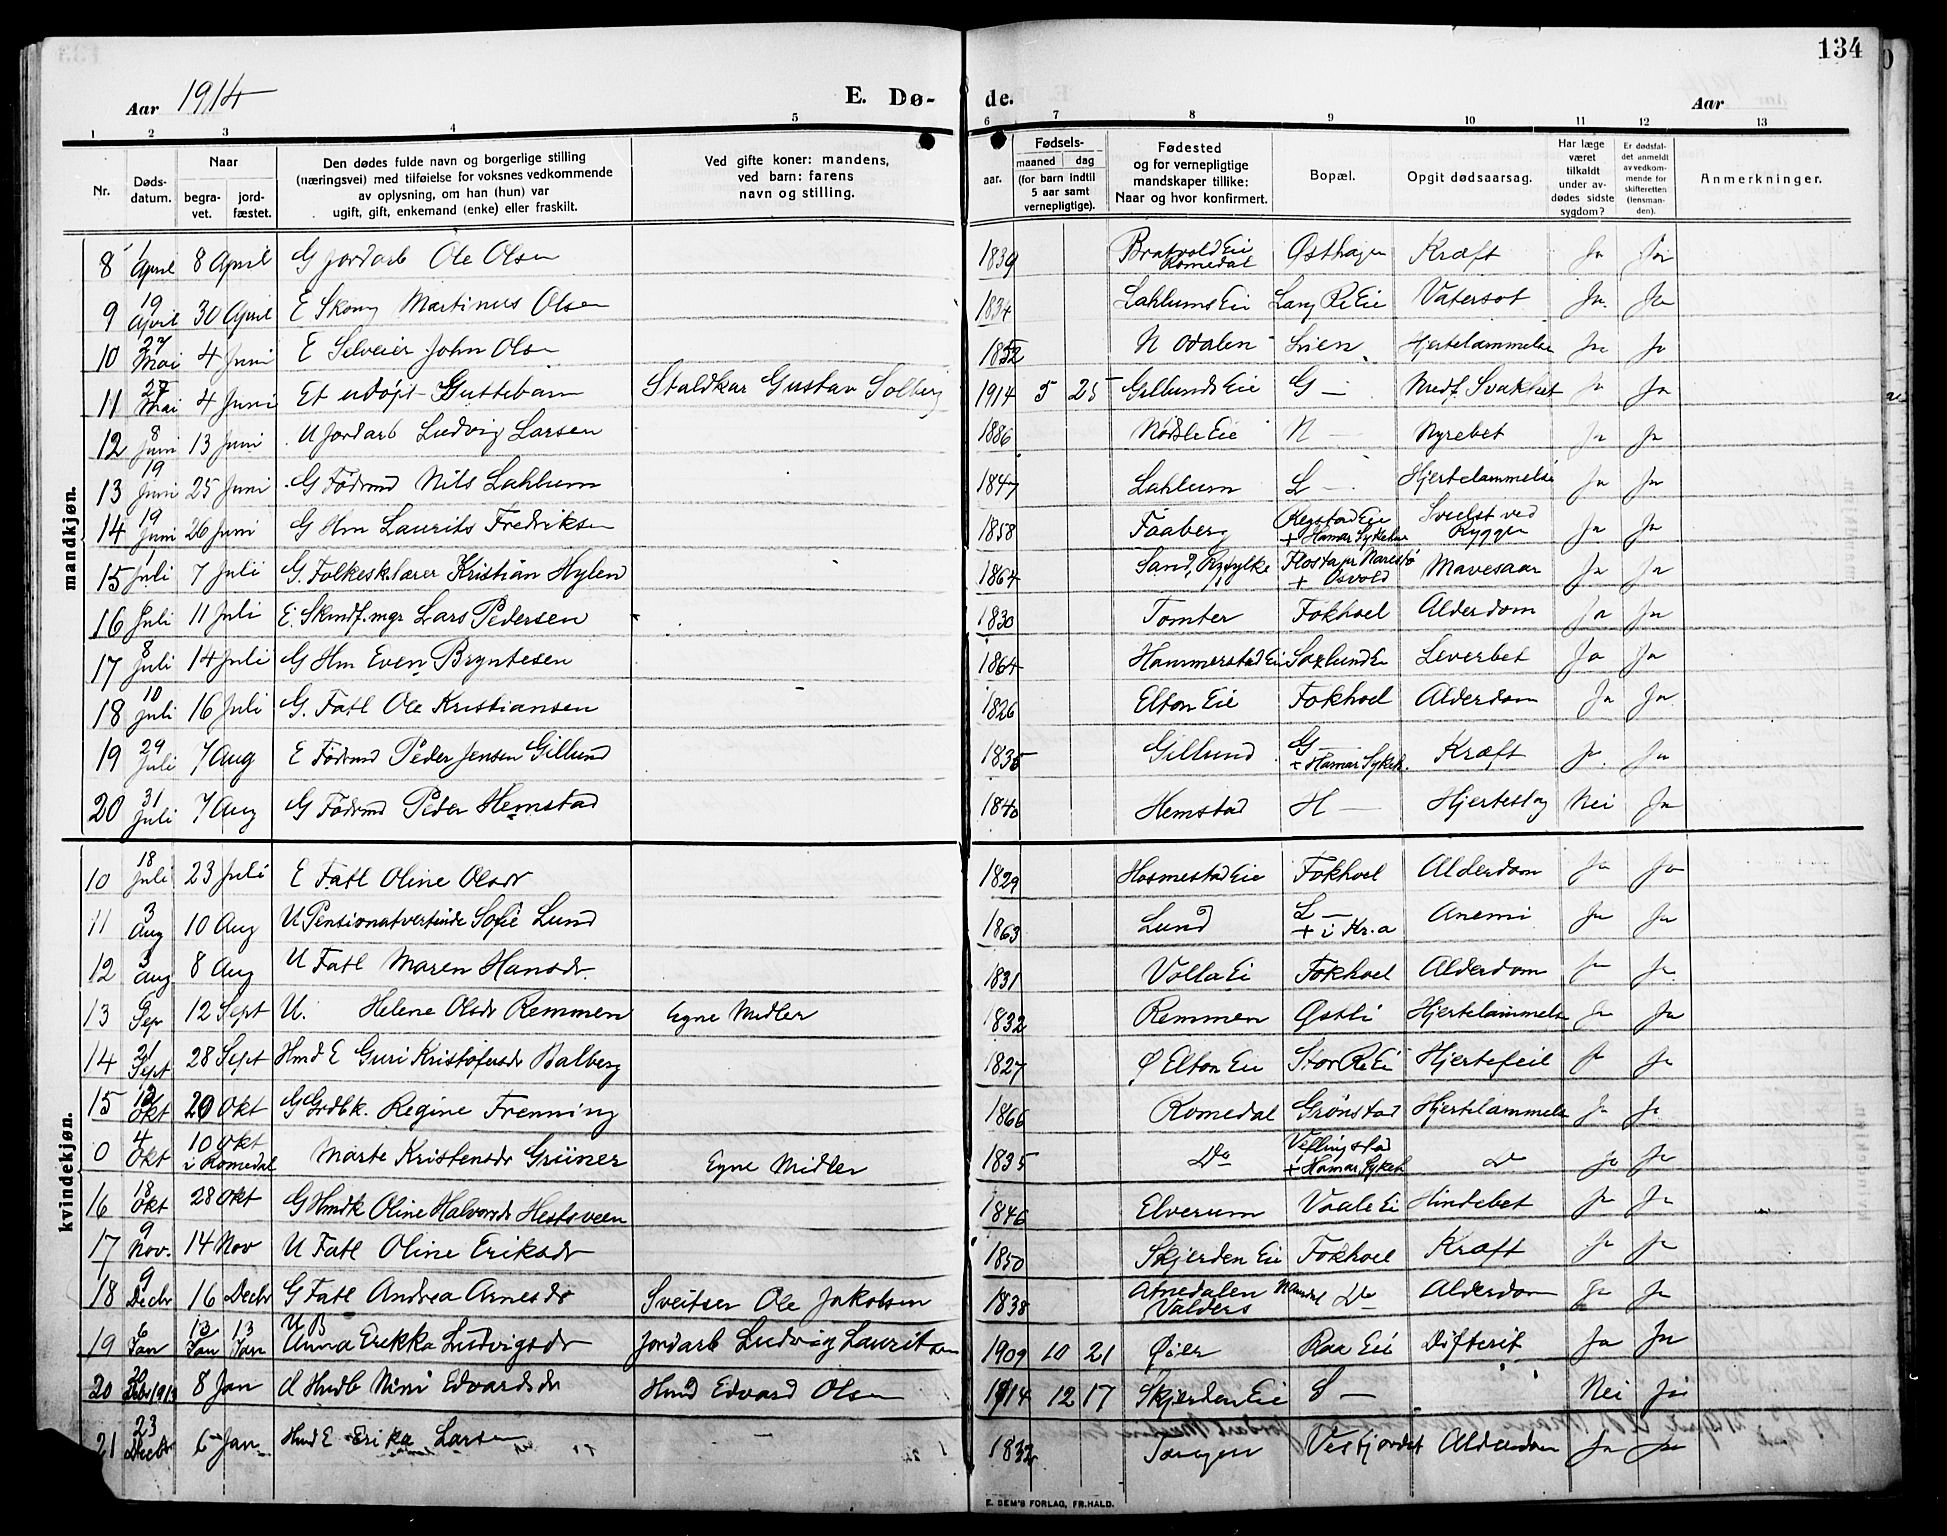 134
Aar 1914
E. Dø-
de.
Aar
1 2 3 4 5 6 7 8 9 10 11 12 13
Nr.
Døds-
datum.
Naar
begra-
vet.
jord-
fæstet.
Den dødes fulde navn og borgerlige stilling
(næringsvei) med tilføielse for voksnes vedkommende
av oplysning, om han (hun) var
ugift, gift, enkemand (enke) eller fraskilt.
Ved gifte koner: mandens,
ved barn: farens
navn og stilling.
Fødsels-
aar.
maaned dag
(for barn indtil
5 aar samt
vernepligtige).
Fødested
og for vernepligtige
mandskaper tillike:
Naar og hvor konfirmert.
Bopæl.
Opgit dødsaarsag.
Har læge
været
tilkaldt
under av-
dødes sidste
sygdom?
Er dødsfal-
det anmeldt
av vedkom-
mende for
skifteretten
(lensman-
den).
Anmerkninger.
mandkjøn.
8 1 April 8 April G Jordarb Ole Olsen 1839 Bratvold Eie Romedal Østhagen Kræft Ja Ja
9 19 April 30 April E Skom Martinus Olsen 1834 Lahlums Eie Lang Re Eie Vatersot Ja Ja
10 27 Mai 4 Juni E Selveier John Olsen 1852 N Odalen Lien Hjertelammelse Ja Ja
11 27 Mai 4 Juni Et udøpt Guttebarn Staldkar Gustav Solberg 1914 5 25 Gillunds Eie G — Medf. Svakhet Ja Ja
12 8 Juni 13 Juni U Jordarb Ludvig Larsen 1886 Nødsle Eie N — Nyrebet Ja Ja
13 19 Juni 25 Juni G Fødrmd Nils Lahlum 1847 Lahlum L — Hjertelammelse Ja Ja
14 19 Juni 26 Juni G Hm Laurits Fredriksen 1858 Faaberg Kegstad Eie + Hamar Sykehus Svulst ved Ryggen Ja Ja
15 1 Juli 7 Juli G. Folkesk.lærer Kristian Hylen 1864 Sand, Ryfylke Flosta pr Narestø + Osvold Mavesaar Ja Ja
16 Juli 11 Juli E. Skindf.mgr Lars Pedersen 1830 Tomter Fokhoel Alderdom Ja Ja
17 8 Juli 14 Juli G Hm Even Bryntesen 1864 Hammerstad Ei Saxlund Ei Leverbet Ja Ja
18 10 Juli 16 Juli G. Fatl Ole Kristiansen 1826 Elton Eie Fokhoel Alderdom Ja Ja
19 29 Juli 7 Aug E Fødrmd Peder Jensen Gillund 1835 Gillund G — + Hamar Sykeh. Kræft Ja Ja
20 31 Juli 7 Aug G Fødrmd Peder Hemstad 1840 Hemstad H — Hjerteslag Nei Ja
kvindekjøn.
10 18 Juli 23 Juli E Fatl Oline Olsdr 1829 Hosmestad Eie Fokhoel Alderdom Ja Ja
11 3 Aug 10 Aug U Pensionatvertinde Sofie Lund 1863 Lund L — + i Kr.a Anemi Ja Ja
12 3 Aug 8 Aug U Fatl Maren Hansdr. 1831 Volla Ei Fokhoel Alderdom Ja Ja
13 Sep 12 Sept U. Helene Olsdr Remmen Egne Midler 1832 Remmen Østli Hjertelammelse Ja Ja
14 21 Sept 28 Sept Hmd E Guri Kristofersdr Balberg 1827 Ø Elton Eie Stor Re Ei Hjertefeil Ja Ja
15 Okt 20 Okt G Grdbk. Regine Frenning 1866 Romedal Grønstad Hjertelammelse Ja Ja
0 4 Okt 10 Okt i Romedal Marte Kristensdr Grüner Egne Midler 1835 Do Vestingstad + Hamar Sykeh Do Ja Ja
16 18 Okt 28 Okt G Hmdk Oline Halvorsdr Hestsveen 1846 Elverum Vaale Ei Hindebet Ja Ja
17 9 Nov. 14 Nov U Fatl Oline Eriksdr 1850 Skjerden Eie Fokhoel Kræft Ja Ja
18 9 Decbr 16 Decbr G Fatl Andrea Arnesdr Sveitser Ole Jakobsen 1838 Atnedalen Valders Do Alderdom Ja Ja
19 6 Jan 13 Jan 13 Jan U B Anna Erikka Ludvigsdr Jordarb Ludvig Lauritsen 1909 10 21 Øier Raa Eie Difterit Ja Ja
20 1913 8 Jan Hmdb Mimi Edvardsdr Hmd Edvard Olsen 1914 12 17 Skjerden Eie S — Nei Ja
21 23 Decbr 6 Jan Hmd E Erika Larsen — 1832 Torgen Vesfjordet Alderdom Ja Ja
E. SEM'S FORLAG, FR.HALD.